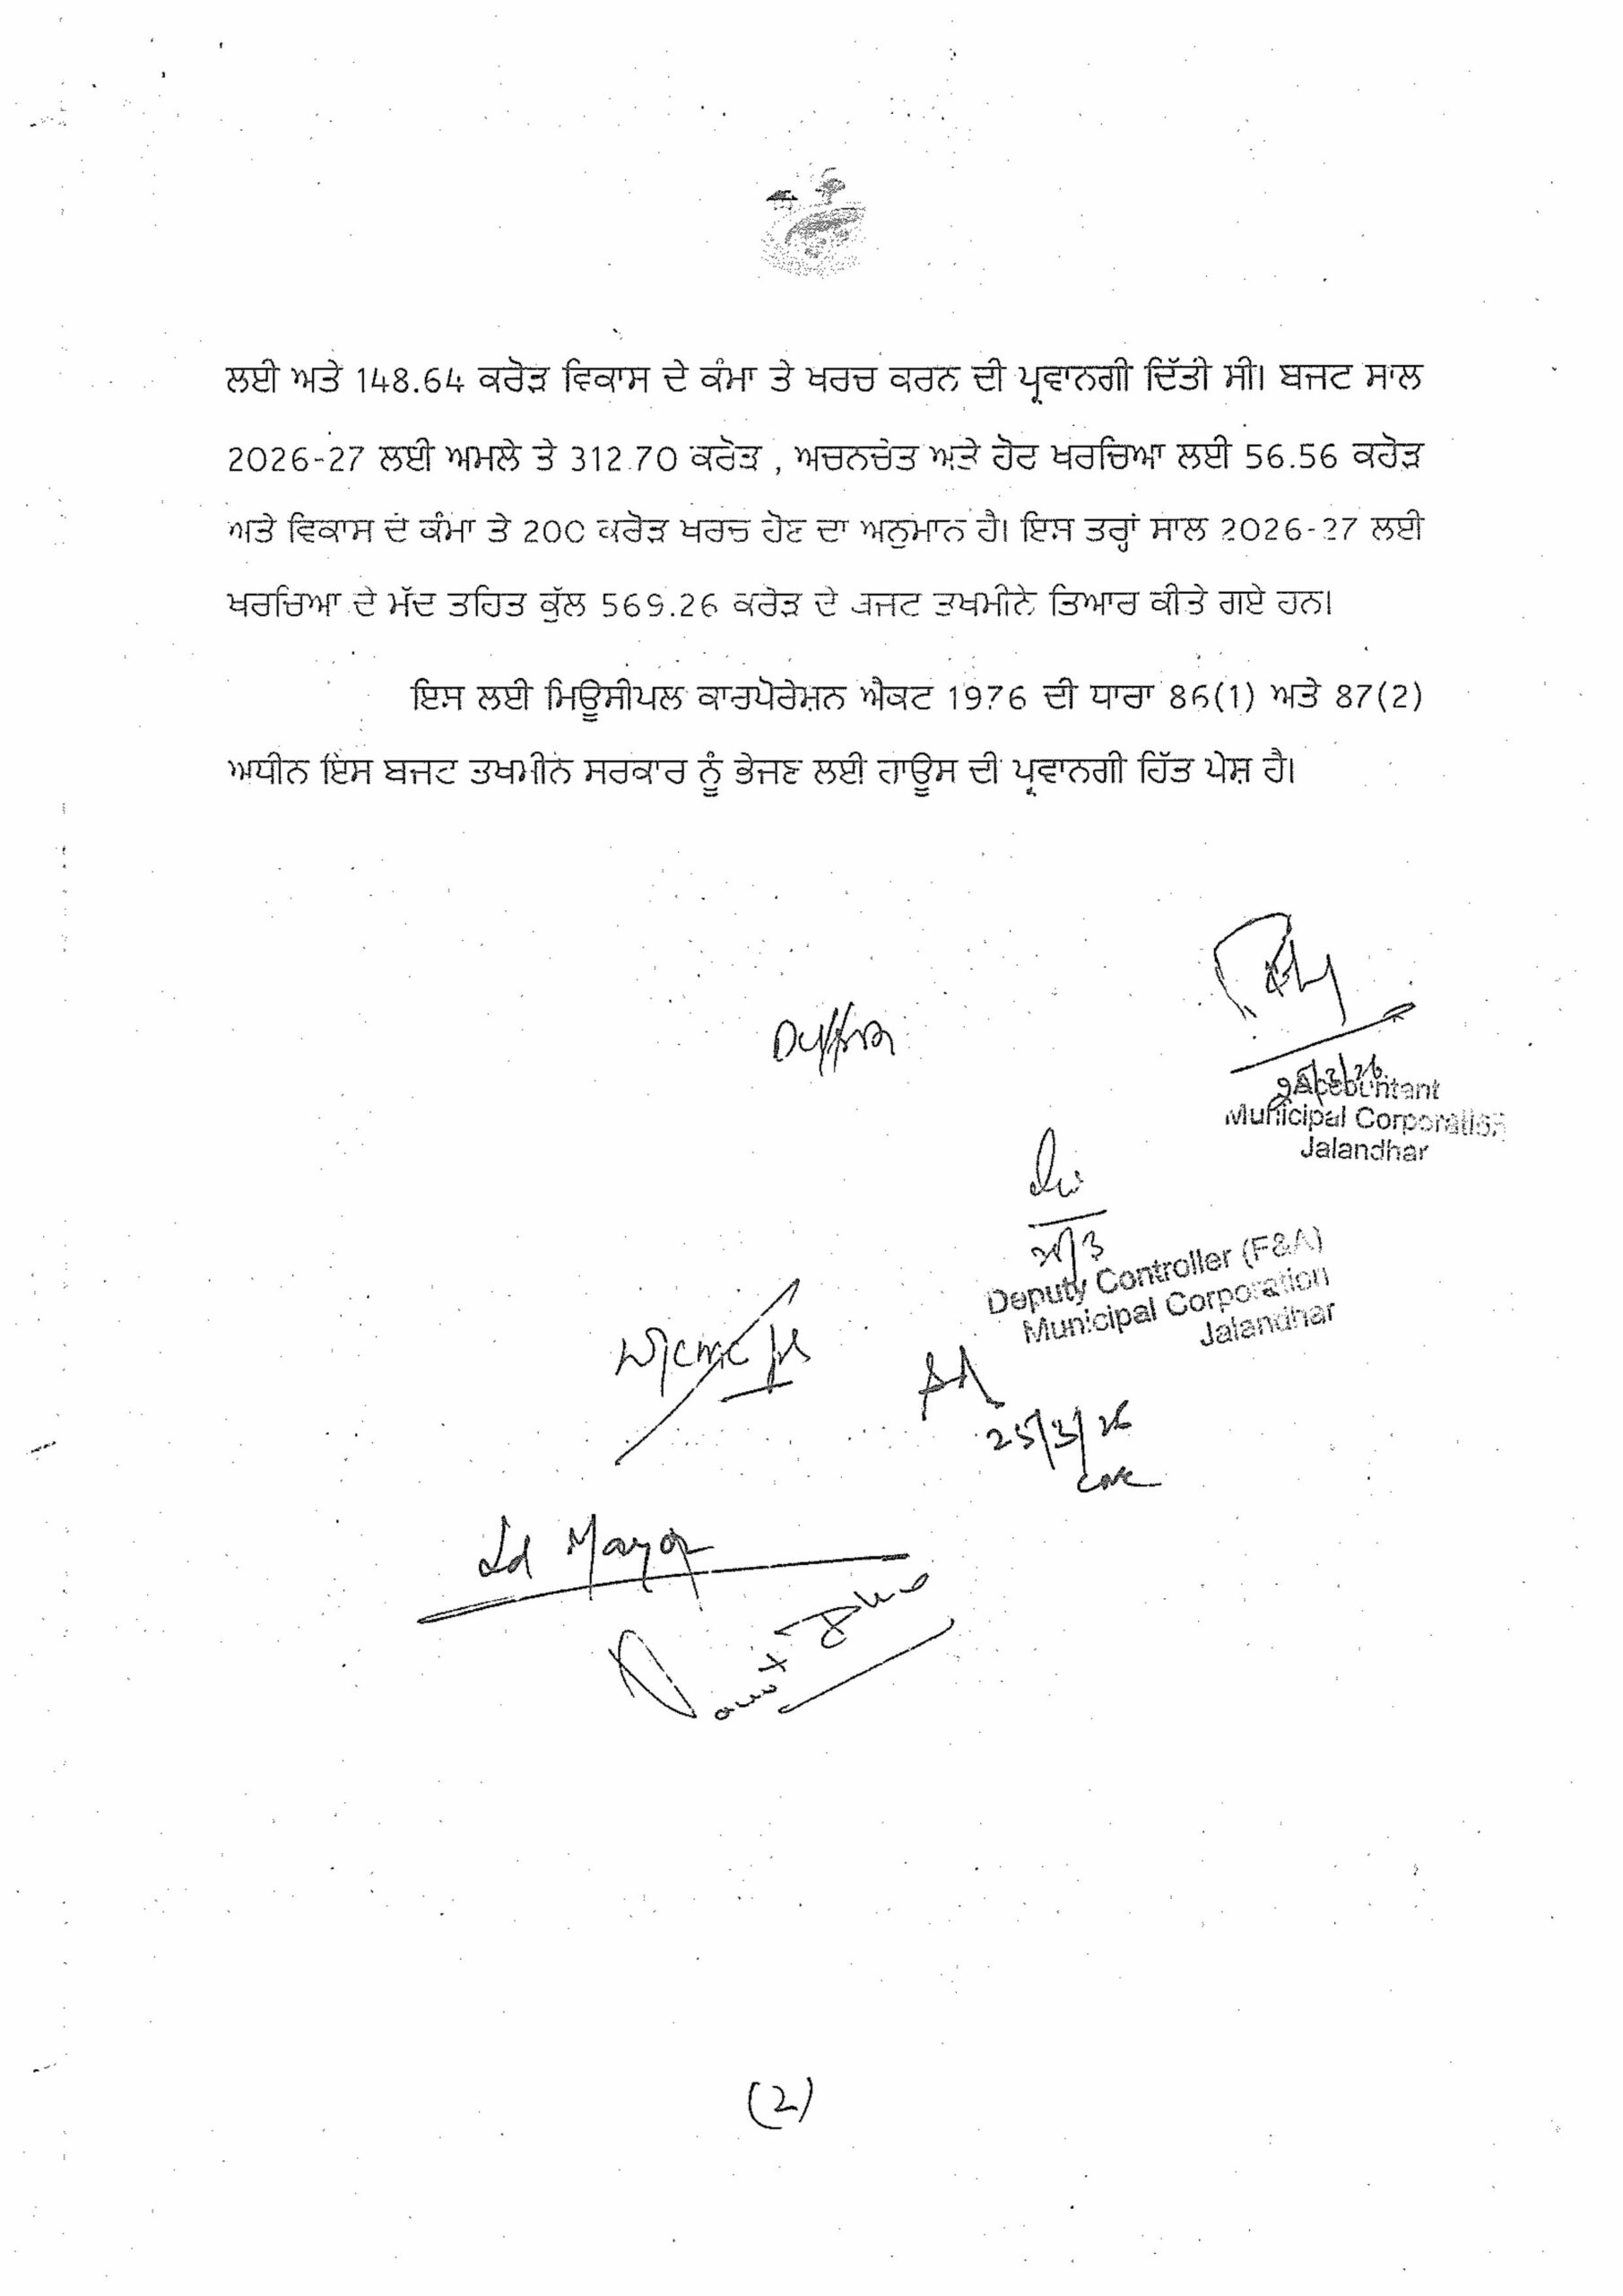 ਲਈ ਅਤੇ 148.64 ਕਰੋੜ ਵਿਕਾਸ ਦੇ ਕੰਮਾ ਤੇ ਖਰਚ ਕਰਨ ਦੀ ਪ੍ਰਵਾਨਗੀ ਦਿੱਤੀ ਸੀ। ਬਜਟ ਸਾਲ
2026-27 ਲਈ ਅਮਲੇ ਤੇ 312.70 ਕਰੋੜ , ਅਚਨਚੇਤ ਅਤੇ ਹੋਰ ਖਰਚਿਆ ਲਈ 56.56 ਕਰੋੜ
ਅਤੇ ਵਿਕਾਸ ਦੇ ਕੰਮਾ ਤੇ 200 ਕਰੋੜ ਖਰਚ ਹੋਣ ਦਾ ਅਨੁਮਾਨ ਹੈ। ਇਸ ਤਰ੍ਹਾਂ ਸਾਲ 2026-27 ਲਈ
ਖਰਚਿਆ ਦੇ ਮੱਦ ਤਹਿਤ ਕੁੱਲ 569.26 ਕਰੋੜ ਦੇ ਬਜਟ ਤਖਮੀਨੇ ਤਿਆਰ ਕੀਤੇ ਗਏ ਹਨ।
ਇਸ ਲਈ ਮਿਊਸੀਪਲ ਕਾਰਪੋਰੇਸ਼ਨ ਐਕਟ 1976 ਦੀ ਧਾਰਾ 86(1) ਅਤੇ 87(2)
ਅਧੀਨ ਇਸ ਬਜਟ ਤਖਮੀਨੇ ਸਰਕਾਰ ਨੂੰ ਭੇਜਣ ਲਈ ਹਾਊਸ ਦੀ ਪ੍ਰਵਾਨਗੀ ਹਿੱਤ ਪੇਸ਼ ਹੈ।
Accountant
Municipal Corporation
Jalandhar
Deputy Controller (F&A)
Municipal Corporation
Jalandhar
25/3/26
Ld Mayor
(2)